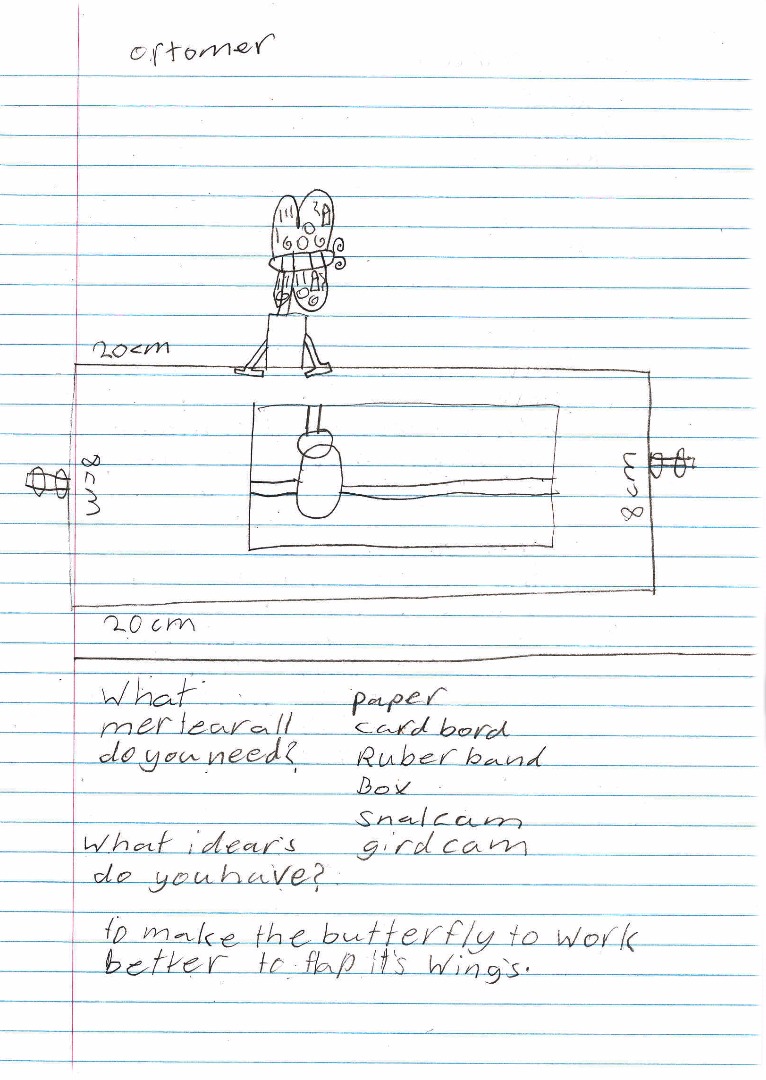 ortomer
20cm
8cm
8cm
20cm
What
mertearall
do you need?
paper
cardbord
Ruber band
Box
snalcam
girdcam
What idear's
do you have?
to make the butterfly to work
better to flap it's wing's.